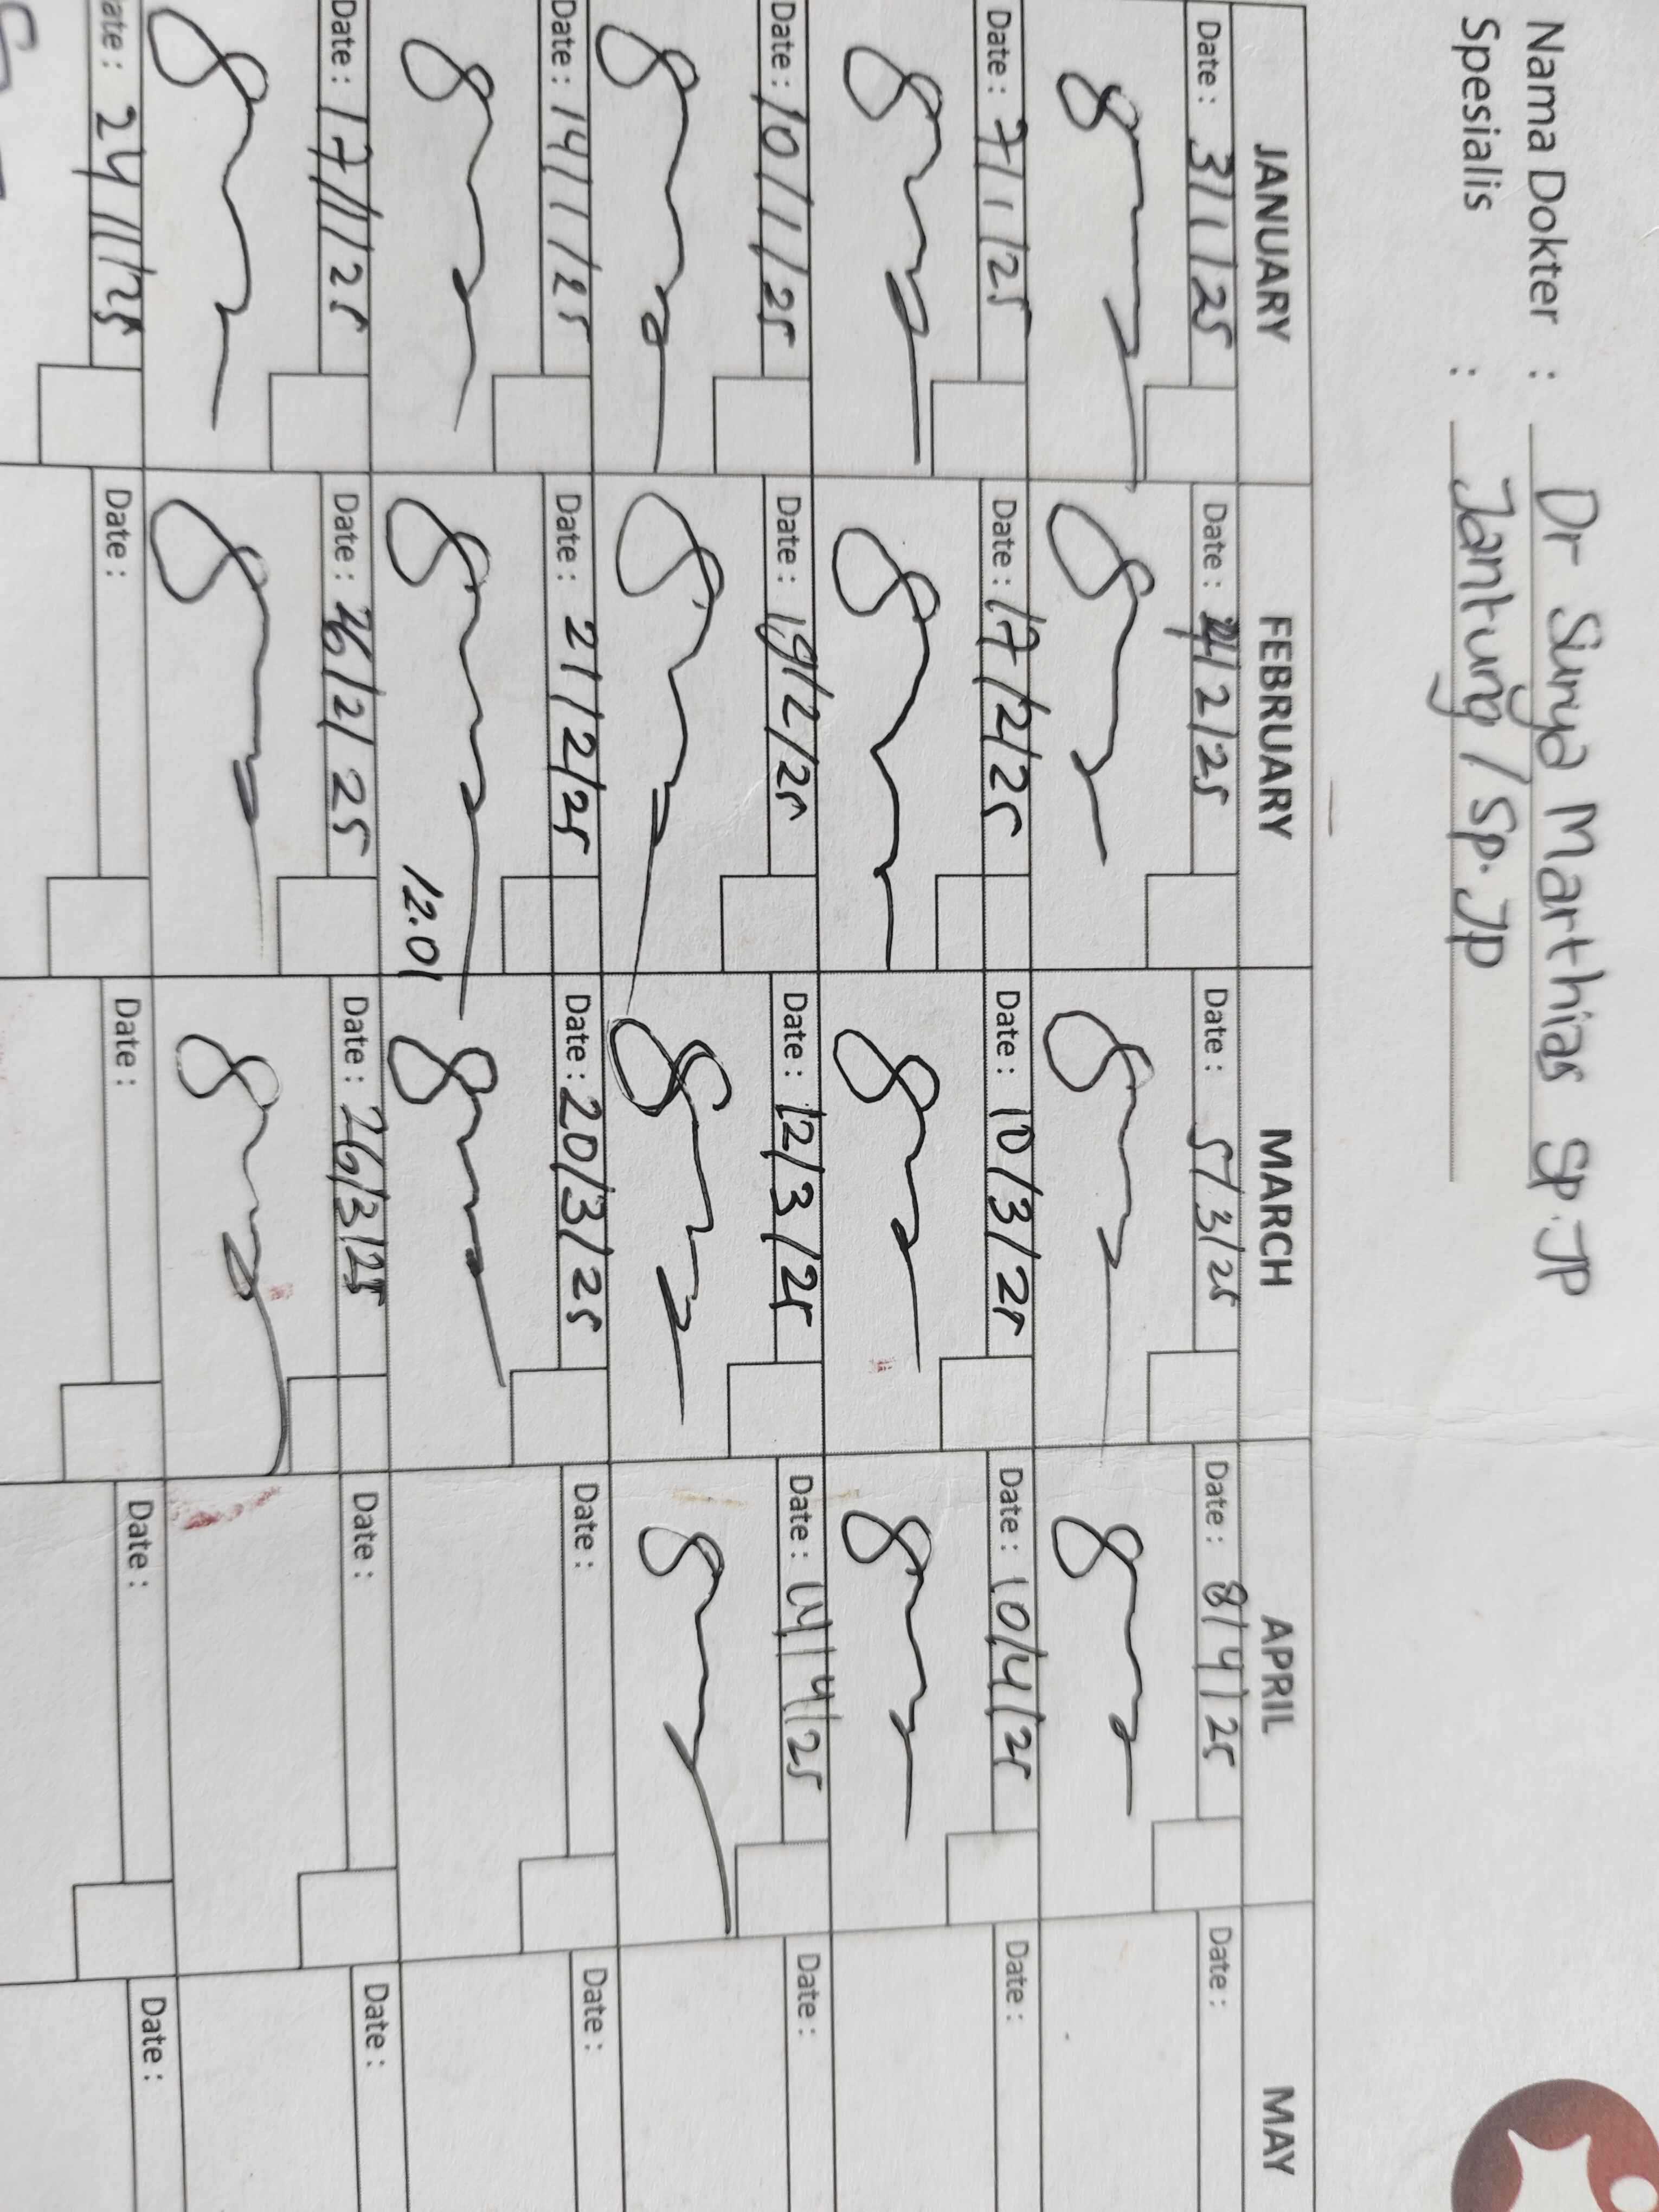 Nama Dokter : Dr Surya Marthias Sp.JP
Spesialis : Jantung / Sp.JP
JANUARY FEBRUARY MARCH APRIL MAY
Date : 3/1/25 Date : 4/2/25 Date : 5/3/25 Date : 8/4/25 Date :
Date : 7/1/25 Date : 17/2/25 Date : 10/3/25 Date : 10/4/25 Date :
Date : 10/1/25 Date : 19/2/25 Date : 12/3/25 Date : 14/4/25 Date :
Date : 14/1/25 Date : 21/2/25 Date : 20/3/25 Date : Date :
12.01
Date : 17/1/25 Date : 26/2/25 Date : 26/3/25 Date : Date :
ate : 24/1/25 Date : Date : Date : Date :